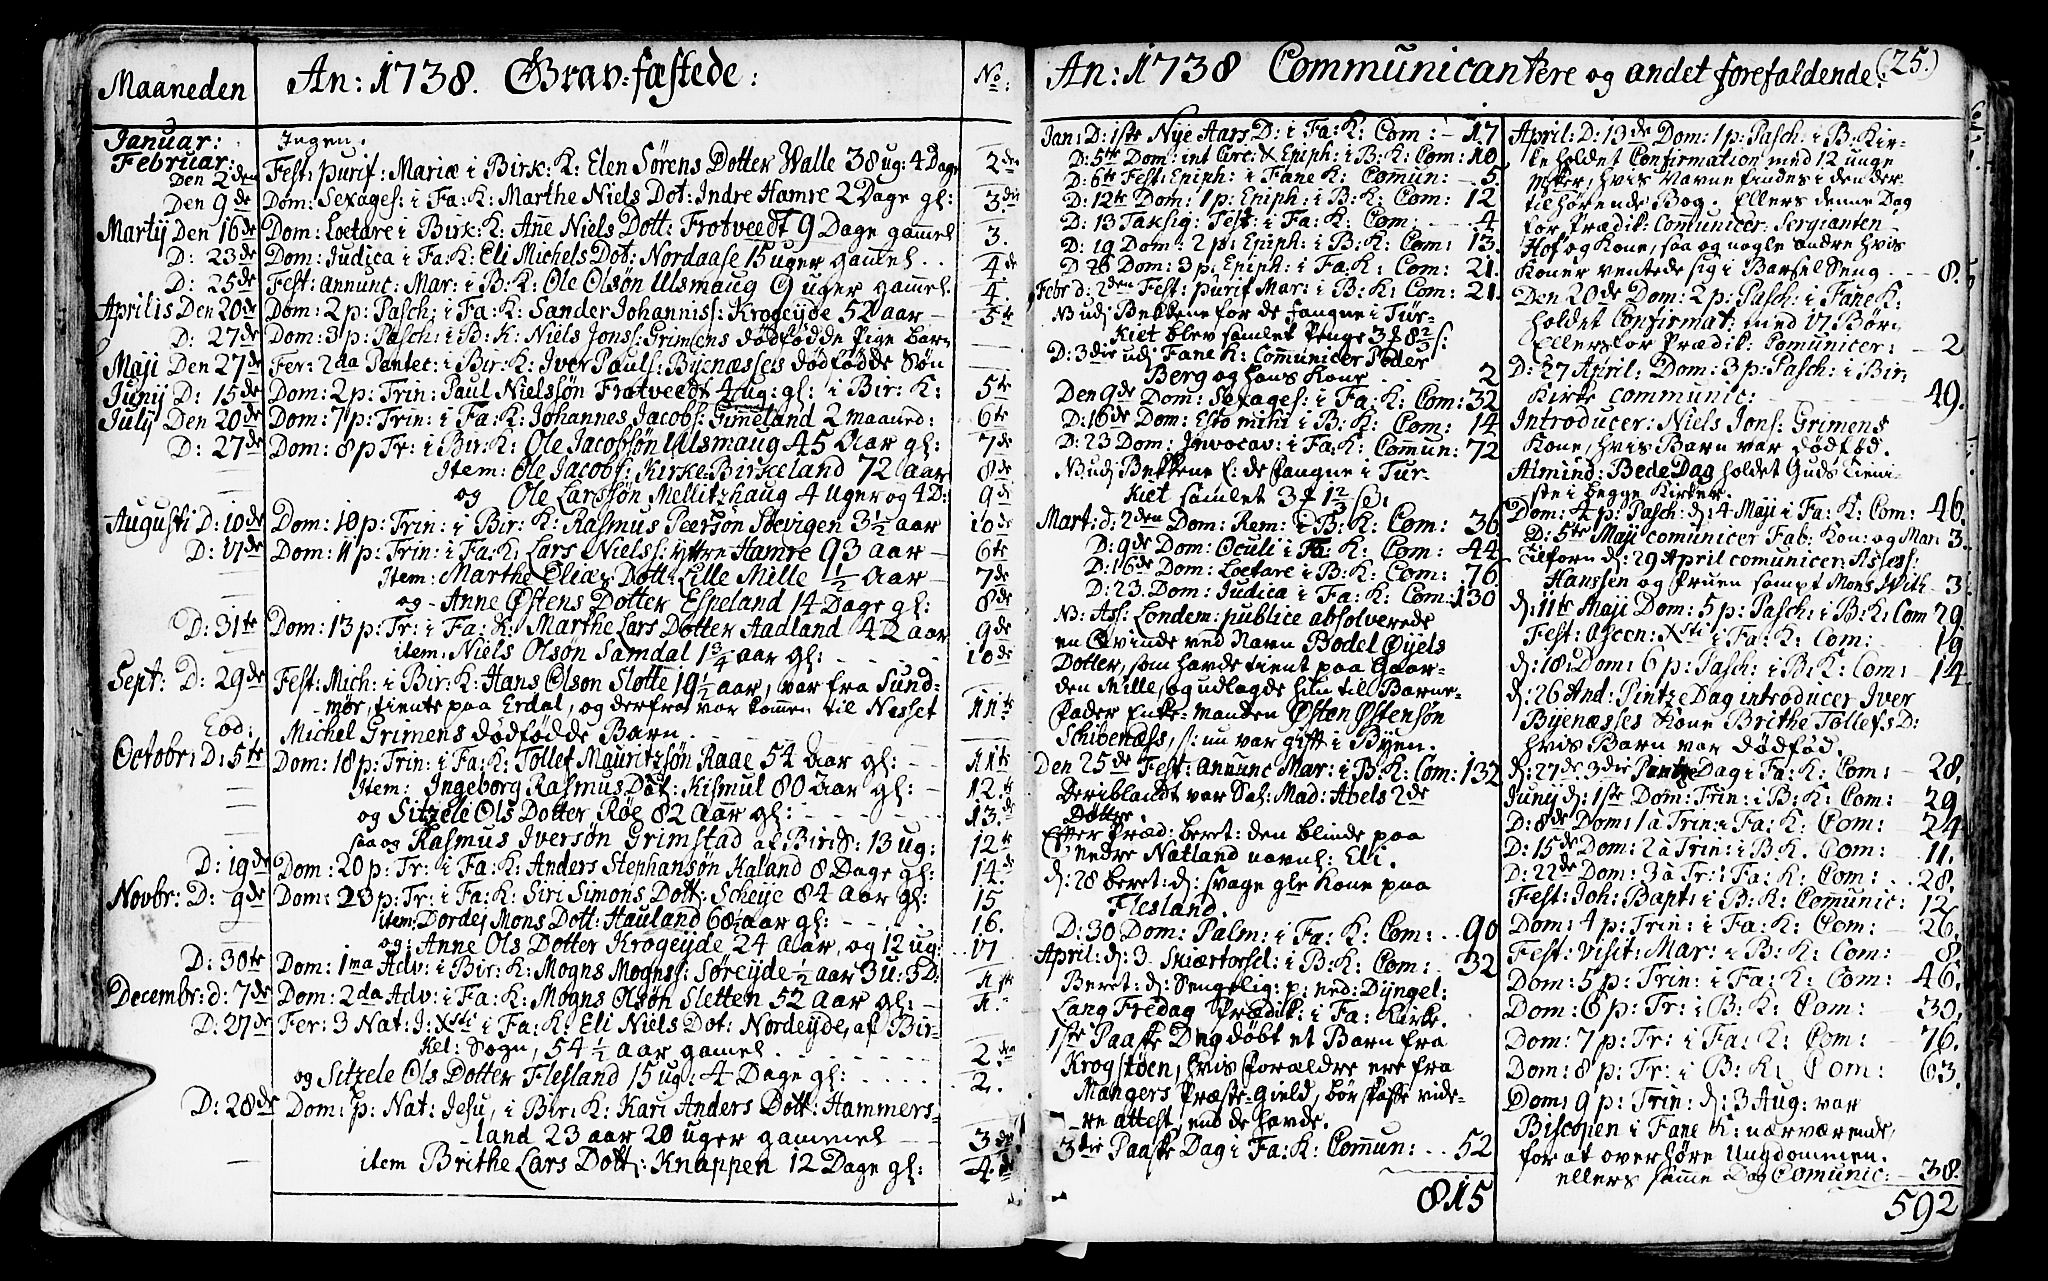 Maaneden An: 1738. Grav=fæstede: No:
Januar: Ingen.
Februar:
Den 2den Fest: purif: Mariæ i Birk: K: Elen Sørens Dotter Walle 38 ug: 4 Dage 2den
Den 9de Dom: Sexages: i Fa: K: Marthe Niels Dot: Indre Hamre 2 Dage gl: 3die
Martij Den 16de Dom: Lætare i Birk: K: Ane Niels Dott: Frotveedt 9 Dage gamel 3.
D: 23de Dom: Judica i Fa: K: Eli Michels Dot: Nordaase 15 uger gamel . . 4de
D: 25de Fest: annunc: Mar: i B: K: Ole Olsøn Ulsmaug 9 uger gamel 4.
Aprilis Den 20de Dom: 2 p: Pasch: i Fa: K: Sander Johanniss: Krogeyde 52 aar — 5te
D: 27de Dom: 3 p: Pasch: i B: K: Niels Jons: Grimens dødfødde Pige barn —
Maji Den 27de Fer: 2da Pentec: i Bir: K: Iver Pauls: Byenæsses dødfødde Søn —
Junij D: 15de Dom: 2 p: Trin: Paul Nielssøn Frotveedt 4 ug: gl: i Bir: K: 5te
July Den 20de Dom: 7 p: Trin: i Fa: K: Johannes Jacobs: Gimeland 2 maaned: 6te
D: 27de Dom: 8 p Tr: i Bir: K: Ole Jacobsøn Ulsmaug 45 Aar gl: 7de
— Item: Ole Jacobs: Kirke-Birkeland 72 aar 8de
— og Ole Larssøn Mellitzhaug 4 Uger og 4 D: 9de
Augusti D: 10de Dom: 10 p: Trin: i Bir: K: Rasmus Peersøn Stevigen 3½ aar 10de
D: 17de Dom: 11 p: Trin: i Fa: K: Lars Niels: yttre Hamre 93 aar — 6te
— Item: Marthe Eliæ Dott: Lille Mille ½ Aar — 7de
— og - Anne Østens Dotter Espeland 14 Dage gl: 8de
D: 31te Dom: 13 p: Tr: i Fa: K: Marthe Lars Dotter Aadland 42 aar 9de
— item: Niels Olsøn Samdal 1¾ aar gl: 10de
Sept: D: 29de Fest: Mich: i Bir: K: Hans Olson Slotte 19½ aar, var fra Sund=
mør, tiente paa Erdal, og derfra var kommen til Nesset 11te
Eod: Michel Grimens dødfødde Barn. —
Octobr: D: 5te Dom: 18 p: Trin: i Fa: K: Tollef Mauritzsøn Raae 54 Aar gl: 11te
— Item: Ingeborg Rasmus Dot: Kismul 80 Aar gl: 12te
— og Sitzele Ols Dotter Røe 82 Aar gl: 13.de
— saa og Rasmus Iversøn Grimstad af Bir: S: 13 ug: 12te
D: 19de Dom: 20 p: Tr: i Fa: K: Anders Stephansøn Haland 8 Dage gl: 14de
Novbr: D: 9de Dom: 23 p: Tr: i Fa: K: Siri Simons Dott: Scheye 84 aar gl: 15
— item: Dordej Mons Dott: Hauland 68½ aar gl: 16.
— og: Anne Ols Dotter Krogeyde 24 aar, og 12 ug: 17
D: 30te Dom: 1ma Adv: i Bir: K: Mogns Mognss: Søreyde ½ aar 3 u: 3 D:
Decembr: d: 7de Dom: 2da Adv: i Fa: K: Mogns Olsøn Sletten 52 Aar gl: —
D: 27de Fer: 3 Nat: J: Xsti i Fa: K: Eli Niels Dot: Nordeyde, af Bir=
Kel: Sogn, 54½ aar gamel. 2den
og Sitzele Ols Dotter Flesland 15 ug: 4 Dage gl: 2.
D: 28de Dom: p: Nat: Jesu, i Bir: K: Kari Anders Dott: Hammers=
land 23 aar 20 uger gammel 3de
— item Brithe Lars Dott: Knappen 12 Dage gl: 4de
An: 1738 Communicantere og andet forefaldende. (25.)
Jan: D: 1ste Nye Aars D: i Fa: K: Com: 17
D: 5te Dom: int Circ: & Epiph: i B: K: Com: 10
D: 6te Fest: Epiph: i Fane K: Comun: 5
D: 12te Dom: 1 p: Epiph: i B: K: Com: 12
D: 13 Taksig: Fest: i Fa: K: Com: 4
D: 19 Dom: 2 p: Epiph: i B: K: Com: 13.
D: 26 Dom: 3 p: Epiph: i Fa: K: Com: 21.
Febr d: 2den Fest: purif Mar: i B: K: Com: 21.
NB ud: Bekkene for de fangne i Tyr=
kiet blev samlet Penge
D: 3die udi Fane K: Communicer Peder
Berg og hans Kone 2
Den 9de Dom: Sexages: i Fa: K: Com: 32
D: 16de Dom: Esto mihi i B: K: Com: 14
D: 23 Dom: Invocav: i Fa: K: Comun: 72
NB ud: Bekkene f: de Fangne i Tyr=
kiet samlet
Mart: d: 2den Dom: Rem: i B: K: Com: 36
D: 9de Dom: Oculi i Fa: K: Com: 44
D: 16de Dom: Lætare i B: K: Com: 76
D: 23. Dom: Judica i Fa: K: Com: 130
NB: Ass: Londem: publice absolverede
en Qvinde ved Navn Bodel Øyels
Dotter, som havde tient paa Gaar=
den Mille, og udlagde hun til Barne=
fader Enke-manden Østen Østensøn
Schibenæss, s: nu var gift i Byen.
Den 25de Fest: annunc Mar: i B: K: Com: 132
Deriblandt var Sal: Mad: Abels 2de
Døttre.
Efter Præd: beret: den blinde paa
nedre Natland navnl: Eli.
d: 28 beret: d: svage gle Kone paa
Flesland.
D: 30 Dom: Palm: i Fa: K: Com: 90
April: d: 3 Skiærtorsd: i B: K: Com: 32
Beret: d: Sengelig: p: ned: Dyngel:
Lang Fredag Prædik: i Fa: Kirke.
1ste Paaske Dag døbt et Barn fra
Krogstøen, hvis Forældre ere fra
Mangers Præste-gield, bør skaffe vide=
re attest, end de havde.
3die Paaske Dag i Fa: K: Comun: 52
815
April: D: 13de Dom: 1 p: Pasch: i B: Kir=
ke holdet Confirmation med 12 unge
Msker, hvis Navne findes i den der=
tilhørende Bog. Ellers denne Dag
for Prædik: Communicer: Sergianten
Hof og Kone, saa og nogle andre hvis
Koner ventede sig i Barsel Seng 8.
Den 20de Dom: 2 p: Pasch: i Fane K:
holdet Confirmat: med 17 Børn
Ellers for Prædik: Comunicer: 2
D: 27 April: Dom: 3 p: Pasch: i Bir:
Kirke communic: 49.
Introducer: Niels Jons: Grimens
Kone, hvis Barn var dødfød.
Almind: Bede Dag holdet Guds Tieni=
ste i begge Kirker.
Dom: 4 p: Pasch: d: 4 Maji i Fa: K: Com: 46.
D: 5te Maji comunicer Fab: Kon: og Mari 3.
Tilforn d: 29 April comunicer: Assess:
Hanssen og Fruen sampt Mons With 3
d: 11te Maji Dom: 5 p: Pasch: i B: K: Com 29.
Fest: Ascen: Xsti i Fa: K: Com: 19
d: 18: Dom: 6 p: Pasch: i B: K: Com: 14
d: 26 And: Pintze Dag introducer Iver
Byenæsses Kone Brithe Tollefs D:
hvis Barn var dødfød.
d: 27de 3die Pintze Dag i Fa: K: Com: 28.
Junij d: 1ste Dom: Trin: i B: K: Com: 29
D: 8de Dom: 1 à Trin: i Fa: K: Com: 24
D: 15de Dom: 2 à Trin: i B: K. Com: 11.
D: 22de Dom: 3 à Tr: i Fa: K: Com: 28.
Fest: Joh: Bapt: i B: K: Comunic: 12
Dom: 4 p: Trin: i Fa: K: Com: 26.
Fest: visit: Mar: i B: K: Com: 8
Dom: 5 p: Trin: i Fa: K: Com: 46.
Dom: 6 p: Tr: i B: K: Com: 30,
Dom: 7 p: Tr: i Fa: K: Com: 76.
Dom: 8 p: Tr: i B: K: Com: 63.
Dom: 9 p: Trin: d: 3 Aug: var
Biscopen i Fane K: nærværende,
for at overhøre Ungdommen.
ellers samme Dag Comunic: 38.
592